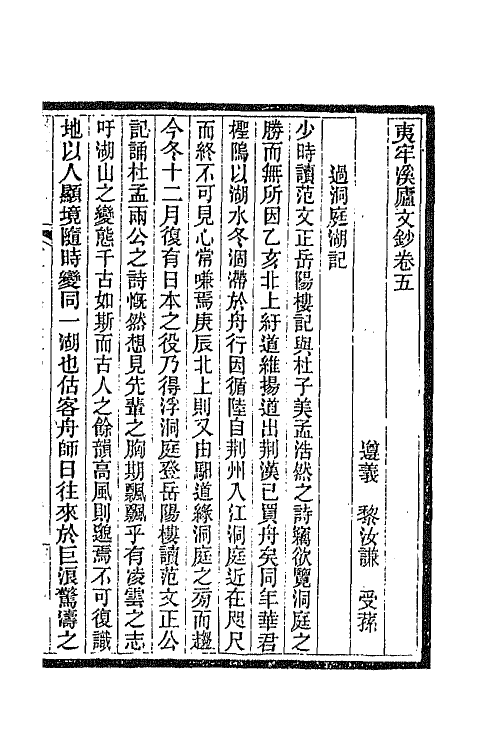 夷牢溪廬文鈔卷五
遵義　黎汝謙　受蓀
過洞庭湖記
少時讀范文正岳陽樓記與杜子美孟浩然之詩竊欲覽洞庭之
勝而無所因乙亥北上紆道維揚道出荆漢已買舟矣同年華君
檉鴅以湖水冬涸滯於舟行因循陸自荆州入江洞庭近在咫尺
而終不可見心常嗛焉庚辰北上則又由馹道緣洞庭之旁而趨
今冬十二月復有日本之役乃得浮洞庭登岳陽樓讀范文正公
記誦杜孟兩公之詩慨然想見先輩之胸期飄飄乎有凌雲之志
吁湖山之變態千古如斯而古人之餘韻高風則邈焉不可復識
地以人顯境隨時變同一湖也估客舟師日往來於巨浪驚濤之